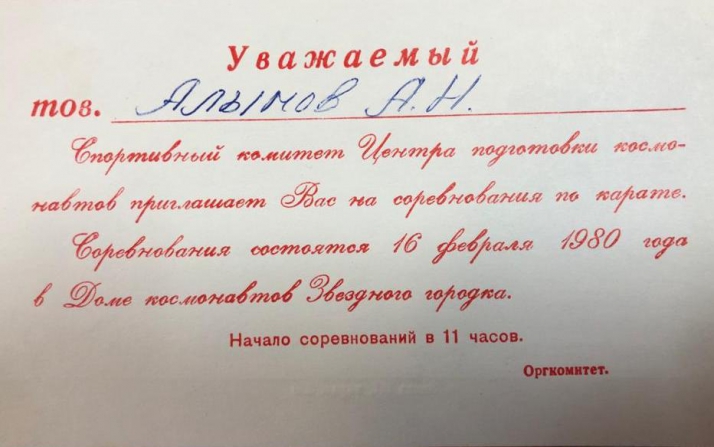 Уважаемый
тов. Алымов А.Н.
Спортивный комитет Центра подготовки космо-
навтов приглашает Вас на соревнования по карате.
Соревнования состоятся 16 февраля 1980 года
в Доме космонавтов Звездного городка.
Начало соревнований в 11 часов.
Оргкомитет.